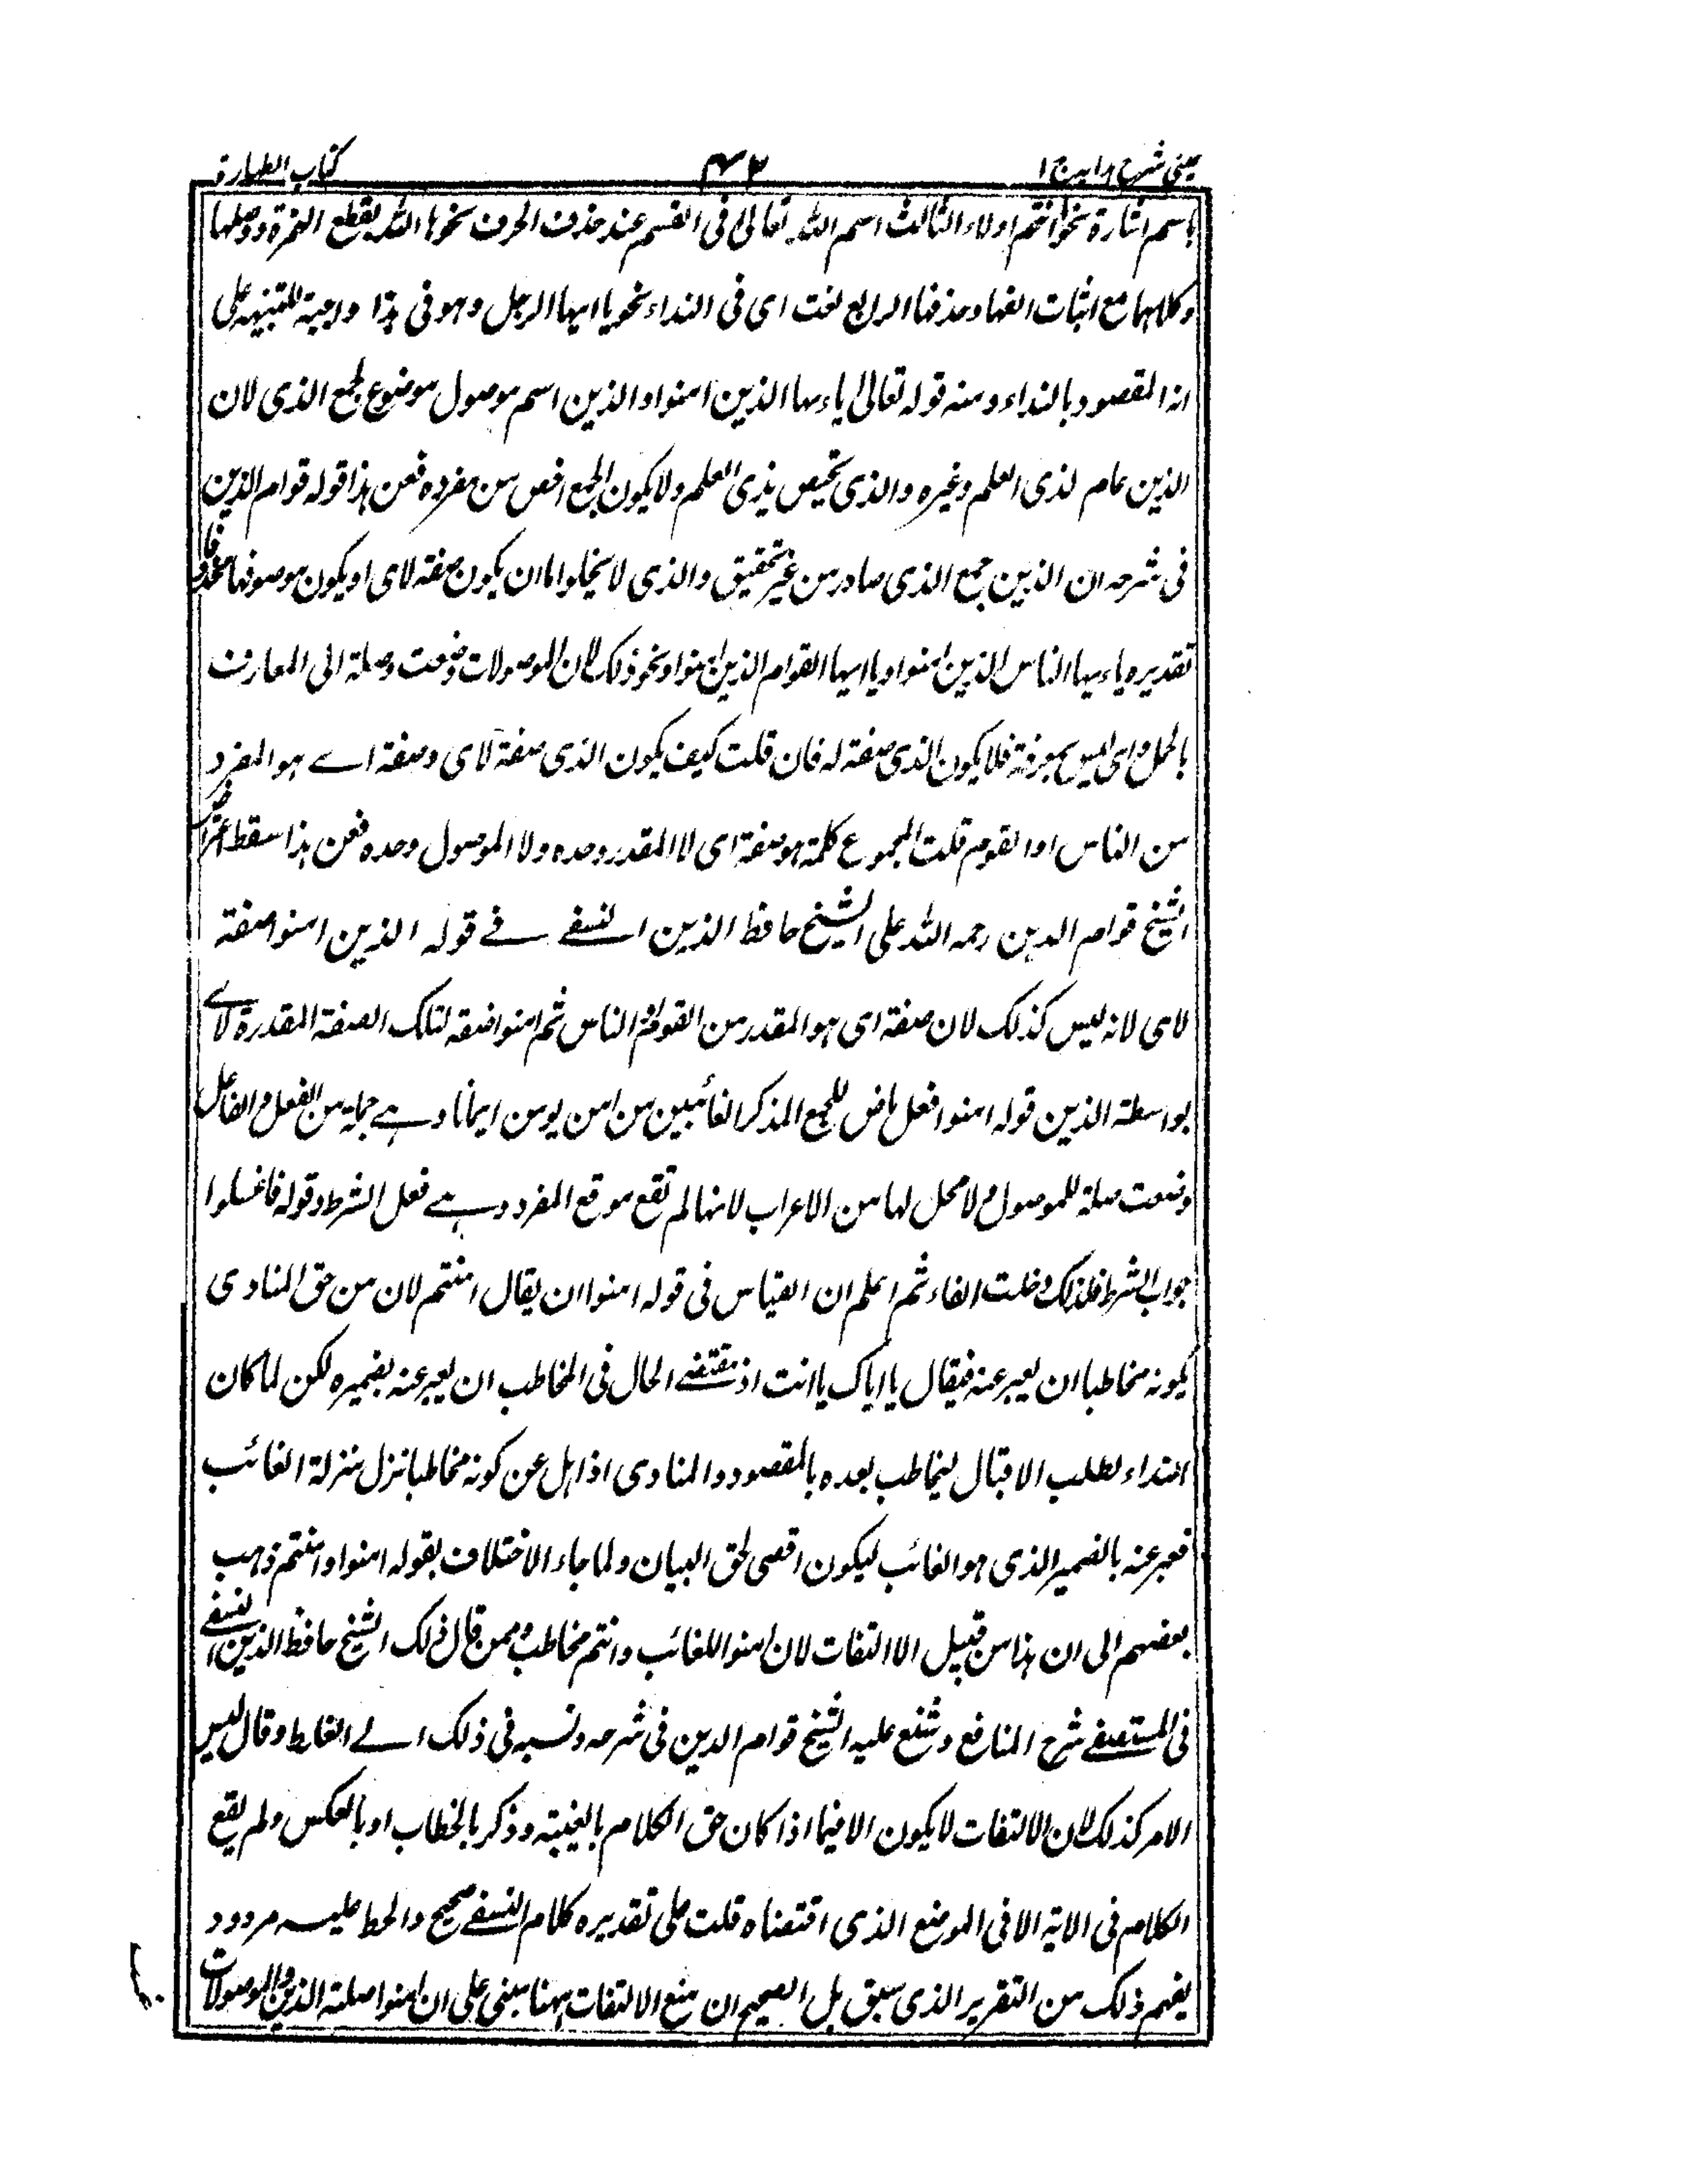 عینی شرح هدایه ج ۱
۴۲
کتاب الطهارة
باسم اشارة نحو ها انتم اولاء الثالث اسم الله تعالی فی القسم عند حذف الحرف نحو ها الله بقطع الهمزة و وصلها
و کلاهما مع اثبات الفها و حذفها الرابع نعت ای فی النداء نحو یا ایها الرجل و هو فی هذا واجبة للتنبیه علی
انه المقصود بالنداء و منه قوله تعالی یاءیها الذین امنوا و الذین اسم موصول موضوع لجمع الذی لان
الذین عام لذی العلم و غیره و الذی تخیص بذی العلم و لا یکون الجمع اخص من مفرده فعن هذا قوله قوام الدین
فی شرحه ان الذین جمع الذی صادر من غیر تحقیق و الذی لا یخلوا اما ان یکون صفة لای او یکون موصوفها محذوفا
تقدیره یاءیها الناس الذین امنوا و یا ایها القوام الذین امنوا و نحو ذلک لان الموصولات وضعت وصلة الی المعارف
بالجمل و ای لیس بمعرفة فلا یکون الذی صفة له فان قلت کیف یکون الذی صفة لای و صفة ای هو المفرد
من الناس او القوم قلت المجموع کلمة هو صفة ای لا المقدر وحده و لا الموصول وحده فعن هذا سقط اعتراض
الشیخ قوام الدین رحمه الله علی الشیخ حافظ الدین النسفی فی قوله الذین امنوا صفة
لای لانه لیس کذلک لان صفة ای هو المقدر من القوم و الناس ثم امنوا صفة لتلک الصفة المقدرة لای
بواسطة الذین قوله امنوا فعل ماض للجمع المذکر الغائبین من امن یومن ایمانا و هی جملة من الفعل و الفاعل
وضعت صلة للموصول و لا محل لها من الاعراب لانها لم تقع موقع المفرد و هی فعل الشرط و قوله فاغسلوا
جواب الشرط فلذلک دخلت الفاء ثم اعلم ان القیاس فی قوله امنوا ان یقال امنتم لان من حق المنادی
یکونه مخاطبا ان یعبر عنه فیقال یا ایاک یا انت اذ مقتضی الحال فی المخاطب ان یعبر عنه بضمیره لکن لما کان
النداء لطلب الاقبال لیخاطب بعده بالمقصود و المنادی اذ اهل عن کونه مخاطبا نزل منزلة الغائب
فعبر عنه بالضمیر الذی هو الغائب لیکون اقضی لحق البیان و لما جاء الاختلاف بقوله امنوا و امنتم ذهب
بعضهم الی ان هذا من قبیل الا التفات لان امنوا للغائب و انتم مخاطب و ممن قال ذلک الشیخ حافظ الدین النسفی
فی المستصفی شرح المنافع و شنع علیه الشیخ قوام الدین فی شرحه و نسبه فی ذلک الی الغلط و قال لیس
الامر کذلک لان الالتفات لا یکون الا فیما اذا کان حق الکلام بالغیبة و ذکر بالخطاب او بالعکس و لم یقع
الکلام فی الایة الا فی الموضع الذی اقتضاه قلت علی تقدیره کلام النسفی صحیح و الحط علیه مردود
یفهم ذلک من التقریر الذی سبق بل الصحیح ان منع الالتفات ههنا مبنی علی ان امنوا صلة الذین و الموصولات